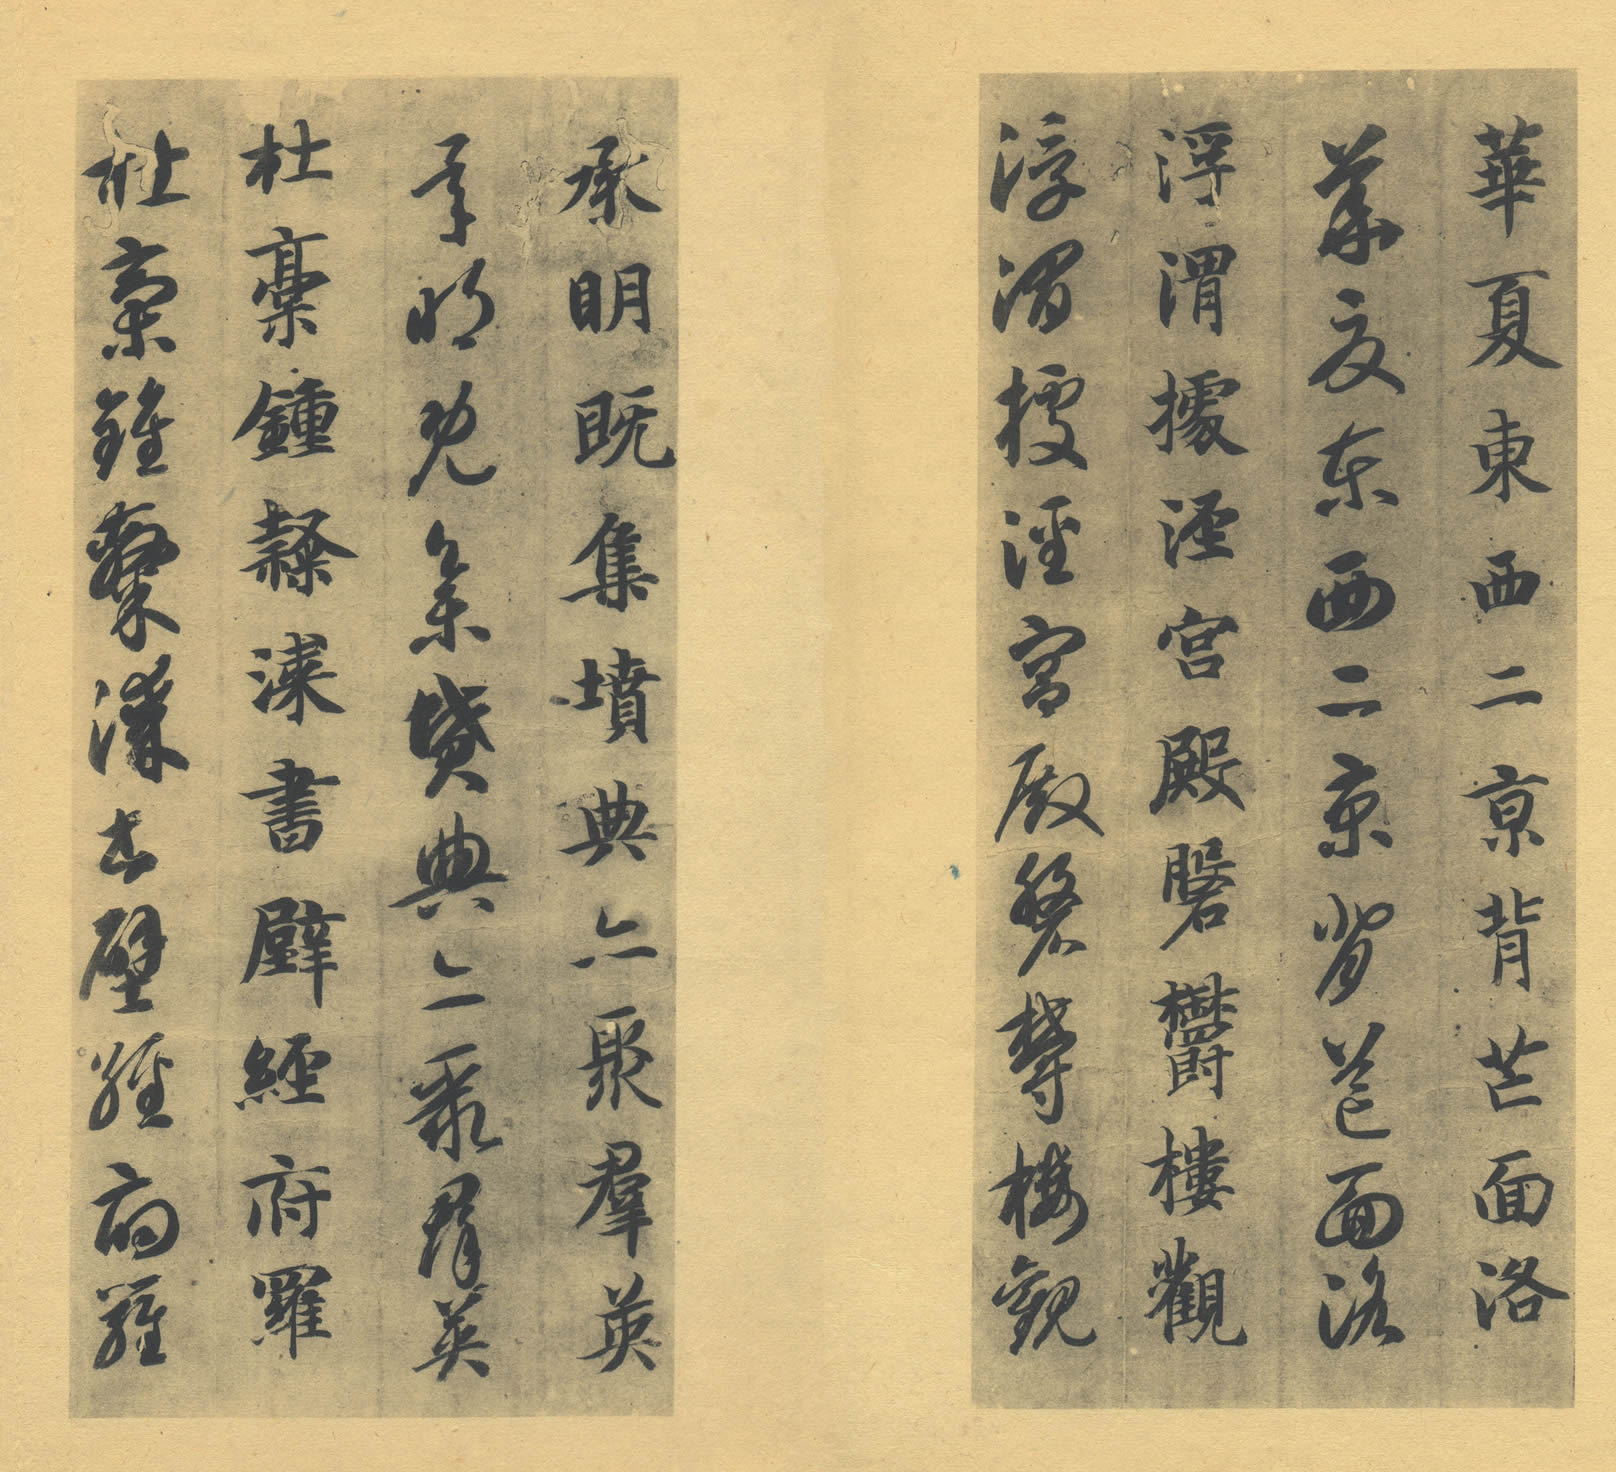 華夏東西二京背芒面洛
華夏東西二京背芒面洛
浮渭據涇宮殿磐鬱樓觀
浮渭據涇宮殿磐鬱樓觀
承明既集墳典亦聚羣英
承明既集墳典亦聚羣英
杜稾鍾隸漆書壁經府羅
杜稾鍾隸漆書壁經府羅